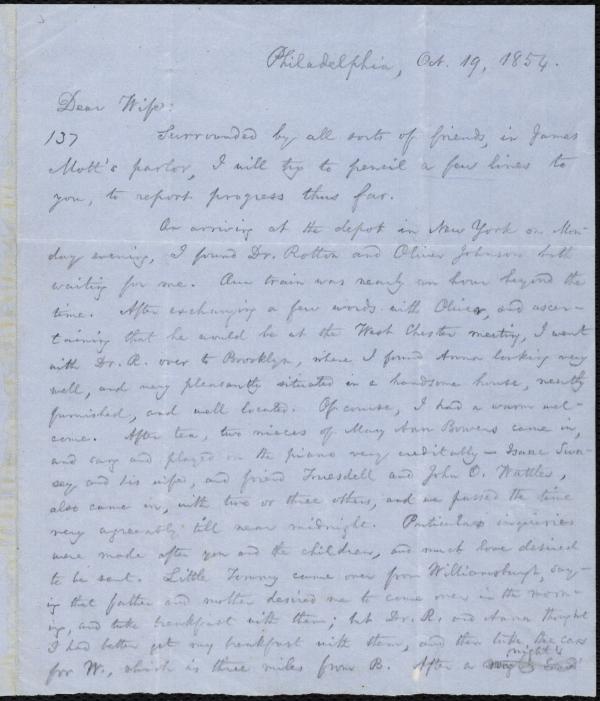 Philadelphia, Oct. 19, 1854.
Dear Wife:
137 Surrounded by all sorts of friends, in James
Mott's parlor, I will try to pencil a few lines to
you, to report progress thus far.
On arriving at the depot in New York on Mon-
day evening, I found Dr. Rotton and Oliver Johnson both
waiting for me. Our train was nearly an hour beyond the
time. After exchanging a few words with Oliver, and ascer-
taining that he would be at the West Chester meeting, I went
with Dr. R. over to Brooklyn, where I found Anna looking very
well, and very pleasantly situated in a handsome house, neatly
furnished, and well located. Of course, I had a warm wel-
come. After tea, two nieces of Mary Ann Bowers came in,
and sang and played on the piano very creditably — Isaac Swa-
sey and his wife, and friend Truesdell and John O. Wattles,
also came in, with two or three others, and we passed the time
very agreeably till near midnight. Particular inquiries
were made after you and the children, and much love desired
to be sent. Little Tommy came over from Williamsburgh, say-
ing that father and mother desired me to come over in the morn-
ing, and take breakfast with them; but Dr. R. and Anna thought
I had better get my breakfast with them, and then take the car
for W., which is three miles from B. After a night's